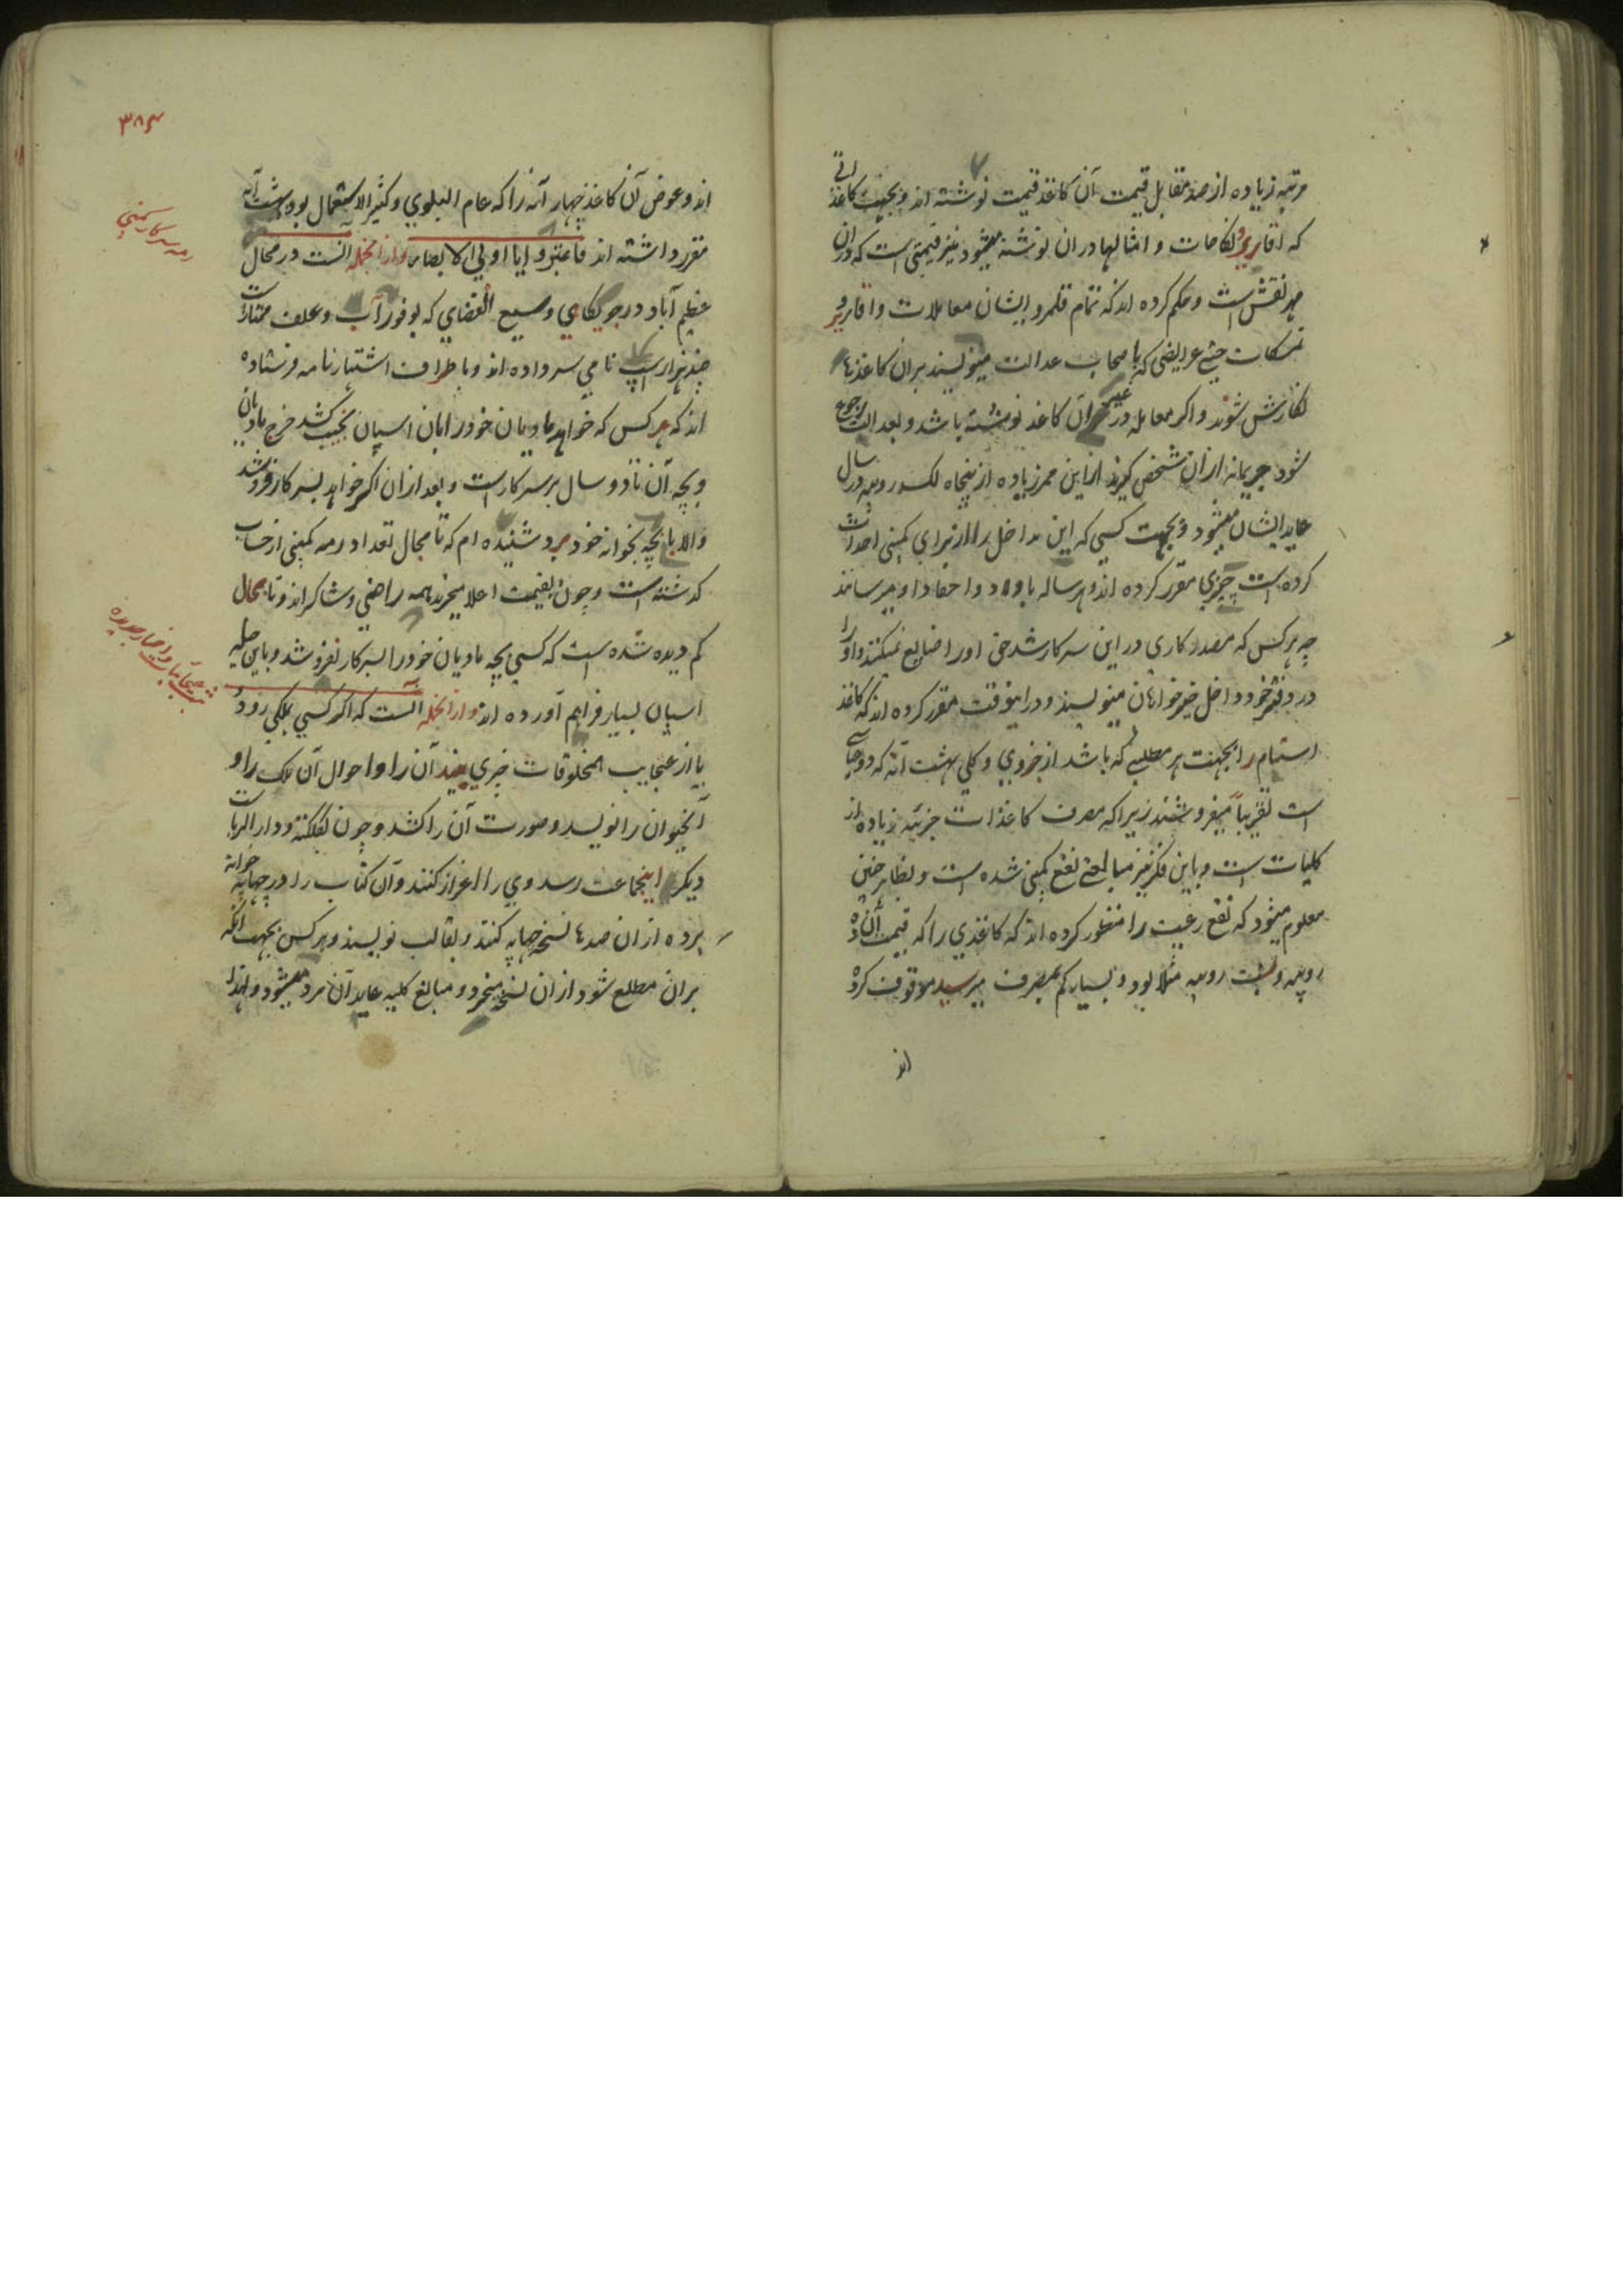 مرتبه زیاده از صد مقابل قیمت آن کاغذ قیمت نوشته اند و بجهت کاغذ
که اقاریر و نکاحات و امثالها دران نوشته میشود نیز قیمتی است که دران
مهر نقش است و حکم کرده اند که تمام قلمرو ایشان معاملات و اقاریر و
تمسکات حتی عرایضی که باصحاب عدالت مینویسند بران کاغذها
نگارش شوند و اکر معامله در غیر آن کاغذ نوشته باشد و بعدالت رجوع
شود جریمانه ازان شخص کیرند ازین ممر زیاده از پنجاه لک روپیه در سال
عاید ایشان میشود و بجهت کسی که این مداخل را از برای کمپنی احداث
کرده است چیزی مقرر کرده اند و هر ساله باولاد و احفاد او میرسانند
چه هرکس که مصدر کاری درین سرکار شد حق او را ضایع نمیکنند و او را
در دفتر خود داخل خیرخواهان مینویسند و درینوقت مقرر کرده اند که کاغذ
استام را بجهت هر مطلبی که باشد از جزوی و کلی بهشت آنه که دو عباسی
است تقریباً میفروشند زیرا که مصرف کاغذات جزئیه زیاده از
کلیات است و باین فکر نیز مبالغی نفع کمپنی شده است و بظاهر چنین
معلوم میشود که نفع رعیت را منظور کرده اند که کاغذی را که قیمت آن ده
روپیه و بیست روپیه مثلا بود و بسیار کم بمصرف میرسید موقوف کرده
اند
۳۸۴
اند و عوض آن کاغذ چهار آنه را که عام البلوی و کثیر الاستعمال بود هشت آنه
مقرر داشته اند فاعتبروا یا اولی الابصار و ازانجمله آنست در محال
رمه سرکار کمپنی
عظیم آباد در چراکاهی وسیع الفضای که بوفور آب و علف ممتاز است
چند هزار اسپ نامی سر داده اند و باطراف اشتهارنامه فرستاده
اند که هر کس که خواهد مادیان خود را بان اسپان نجیب کشد خرج مادیان
و بچه آن تا دو سال بر سرکار است و بعد ازان اکر خواهد بسرکار فروشد
والا با بچه بخانه خود برد شنیده ام که تا بحال تعداد رمه کمپنی از حساب
کذشته است و چون بقیمت اعلا میخرند همه راضی و شاکر اند و تا بحال
کم دیده شده است که کسی بچه مادیان خود را بسرکار نفروشد و باین حیله
اسپان بسیار فراهم آورده اند و ازانجمله آنست که اکر کسی بملکی رود
یا از عجایب مخلوقات چیزی بیند آن را و احوال آن ملک را و
آنحیوان را نویسد و صورت آن را کشد و چون بکلکته و دار الریاست
دیکر اینجماعت رسد وی را اعزاز کنند و آن کتاب را در چهاپه خانه
برده ازان صدها نسخه چهاپه کنند و بقالب نویسند و هر کس بجهت آنکه
بران مطلع شود ازان نسخه میخرد و مبالغ کلیه عاید آن مرد میشود و لهذا